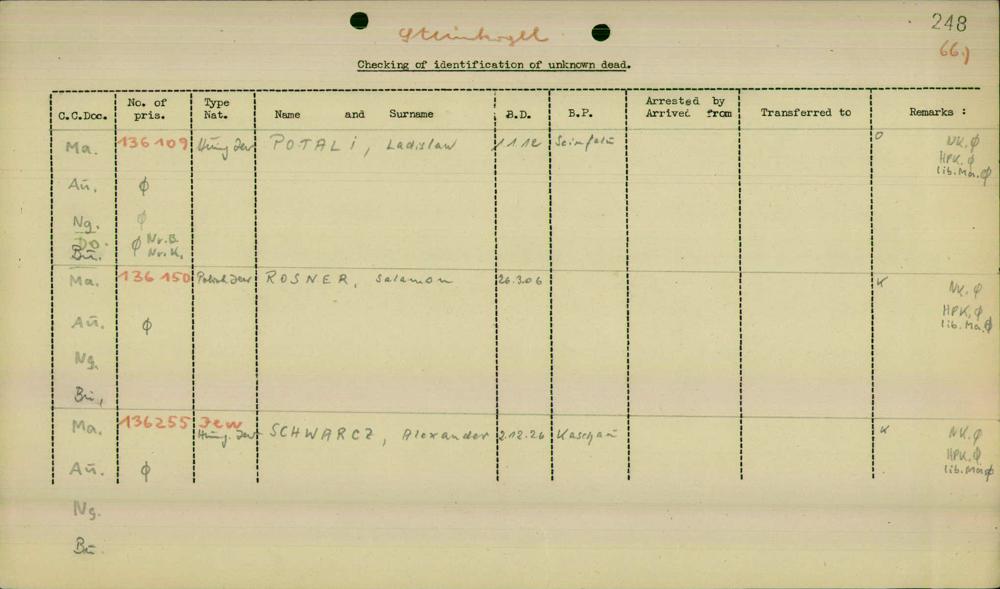 248
Steinkogel
66.)
Checking of identification of unknown dead.
C.C.Doc. No. of pris. Type Nat. Name and Surname B.D. B.P. Arrested by Arrived from Transferred to Remarks :
Ma. 136 109 Hung Jew POTALI, Ladislaw 1.1.12 O NK. ϕ
HPK. ϕ
lib. Ma. ϕ
Au. ϕ
Ng. ϕ
Do.
Bu. ϕ Nr.B.
Nr.K.
Ma. 136 150 Polish Jew ROSNER, Salamon 26.3.06 K NK. ϕ
HPK. ϕ
lib. Ma. ϕ
Au. ϕ
Ng.
Bu.
Ma. 136255 Jew
Hung. Jew SCHWARCZ, Alexander 2.12.26 Kaschau K NK. ϕ
HPK. ϕ
lib. Ma. ϕ
Au. ϕ
Ng.
Bu.